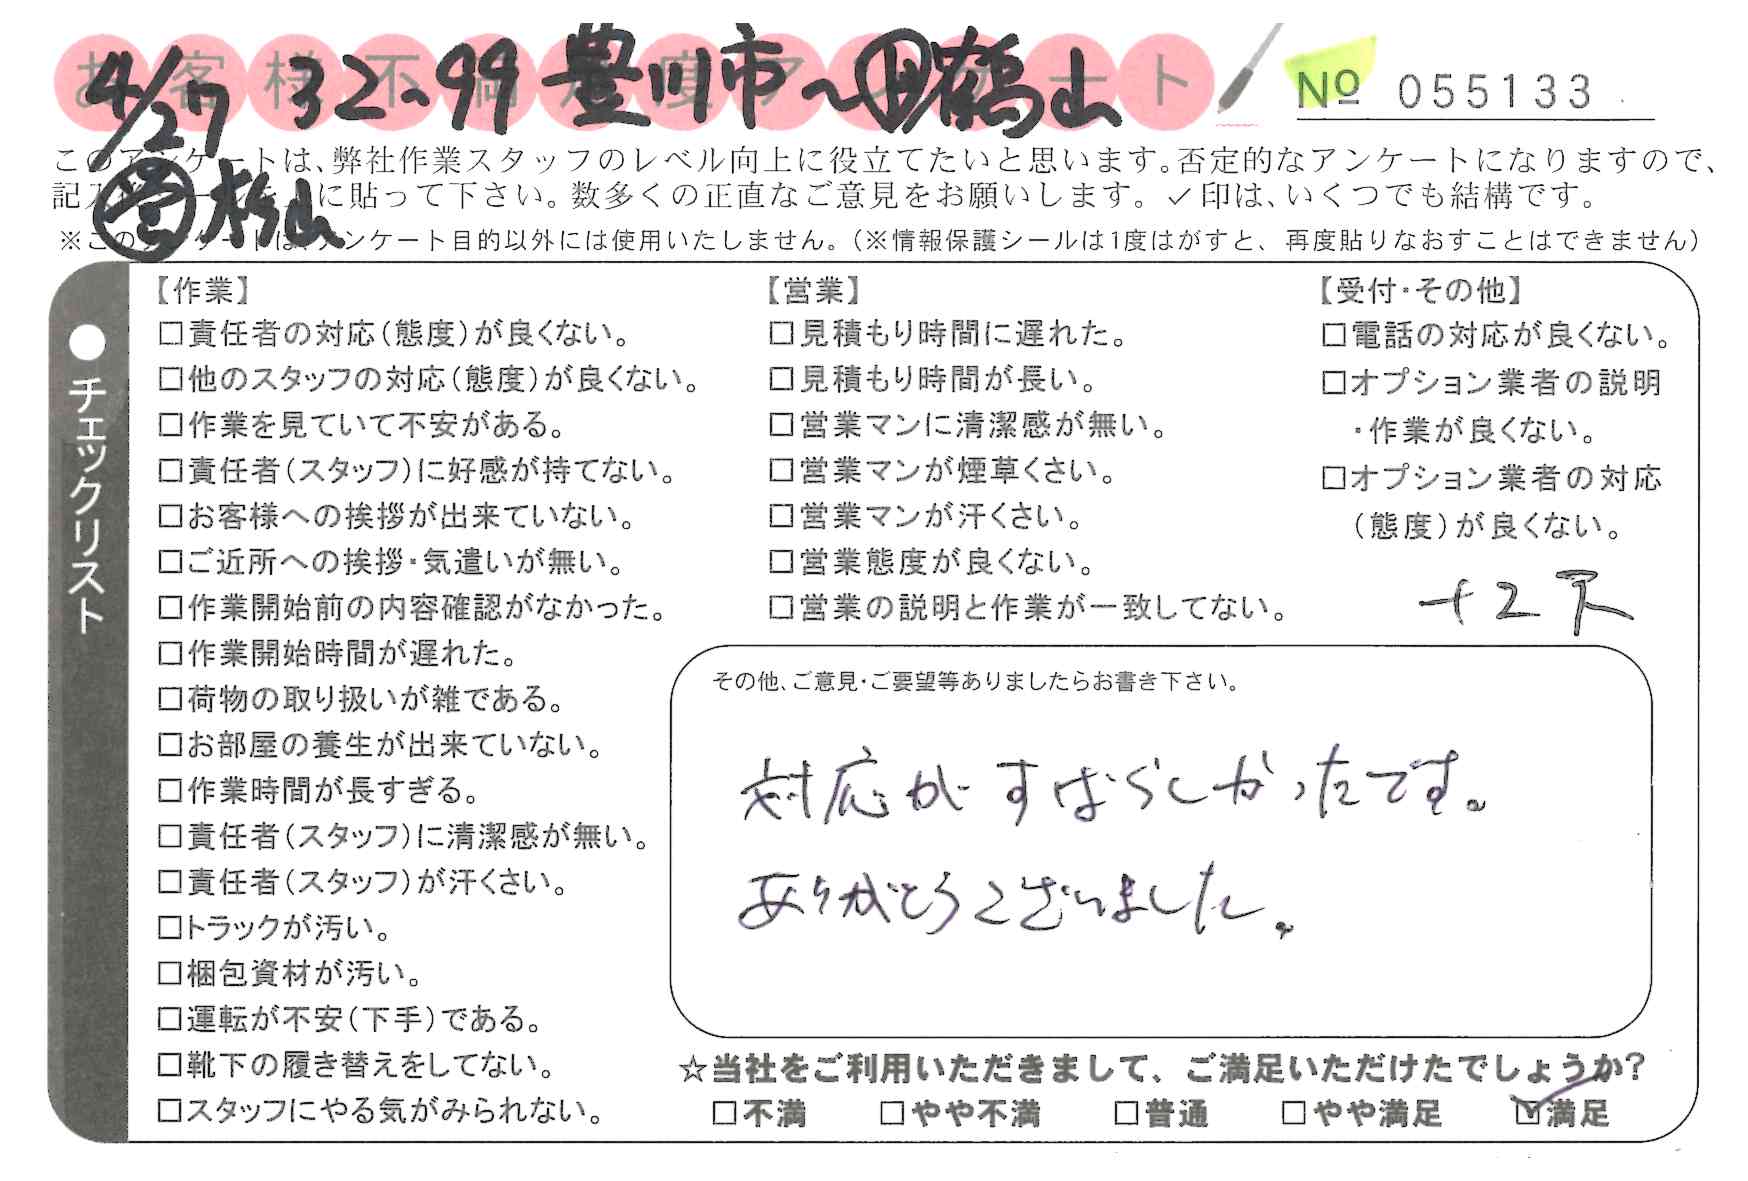 お客様不満足度アンケート
4/27 32-99 豊川市〜 鶴山
杉山
№ 055133
このアンケートは、弊社作業スタッフのレベル向上に役立てたいと思います。否定的なアンケートになりますので、
に貼って下さい。数多くの正直なご意見をお願いします。✓印は、いくつでも結構です。
※このアンケートは、アンケート目的以外には使用いたしません。（※情報保護シールは1度はがすと、再度貼りなおすことはできません）
●チェックリスト
【作業】
□責任者の対応（態度）が良くない。
□他のスタッフの対応（態度）が良くない。
□作業を見ていて不安がある。
□責任者（スタッフ）に好感が持てない。
□お客様への挨拶が出来ていない。
□ご近所への挨拶・気遣いが無い。
□作業開始前の内容確認がなかった。
□作業開始時間が遅れた。
□荷物の取り扱いが雑である。
□お部屋の養生が出来ていない。
□作業時間が長すぎる。
□責任者（スタッフ）に清潔感が無い。
□責任者（スタッフ）が汗くさい。
□トラックが汚い。
□梱包資材が汚い。
□運転が不安（下手）である。
□靴下の履き替えをしてない。
□スタッフにやる気がみられない。
【営業】
□見積もり時間に遅れた。
□見積もり時間が長い。
□営業マンに清潔感が無い。
□営業マンが煙草くさい。
□営業マンが汗くさい。
□営業態度が良くない。
□営業の説明と作業が一致してない。
【受付・その他】
□電話の対応が良くない。
□オプション業者の説明
・作業が良くない。
□オプション業者の対応
（態度）が良くない。
+2
その他、ご意見・ご要望等ありましたらお書き下さい。
対応がすばらしかったです。
ありがとうございました。
☆当社をご利用いただきまして、ご満足いただけたでしょうか？
□不満 □やや不満 □普通 □やや満足 ☑満足